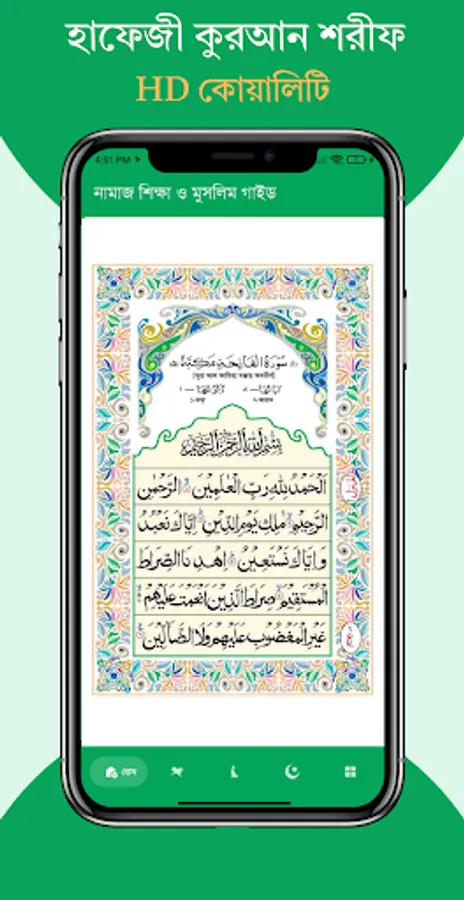 হাফেজী কুরআন শরীফ
HD কোয়ালিটি
4:51 PM
নামাজ শিক্ষা ও মুসলিম গাইড
سُوْرَةُ الْفَاتِحَةِ مَكِّيَّةٌ
بِسْمِ اللّٰهِ الرَّحْمٰنِ الرَّحِيْمِ
اَلْحَمْدُ لِلّٰهِ رَبِّ الْعٰلَمِيْنَ الرَّحْمٰنِ
الرَّحِيْمِ مٰلِكِ يَوْمِ الدِّيْنِ اِيَّاكَ نَعْبُدُ
وَاِيَّاكَ نَسْتَعِيْنُ اِهْدِنَا الصِّرَاطَ
الْمُسْتَقِيْمَ صِرَاطَ الَّذِيْنَ اَنْعَمْتَ عَلَيْهِمْ
غَيْرِ الْمَغْضُوْبِ عَلَيْهِمْ وَلَا الضَّآلِّيْنَ
হোম